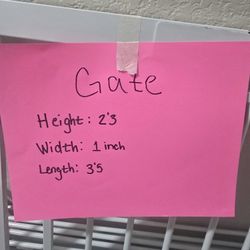 Gate
Height: 2'3
Width: 1 inch
Length: 3'5